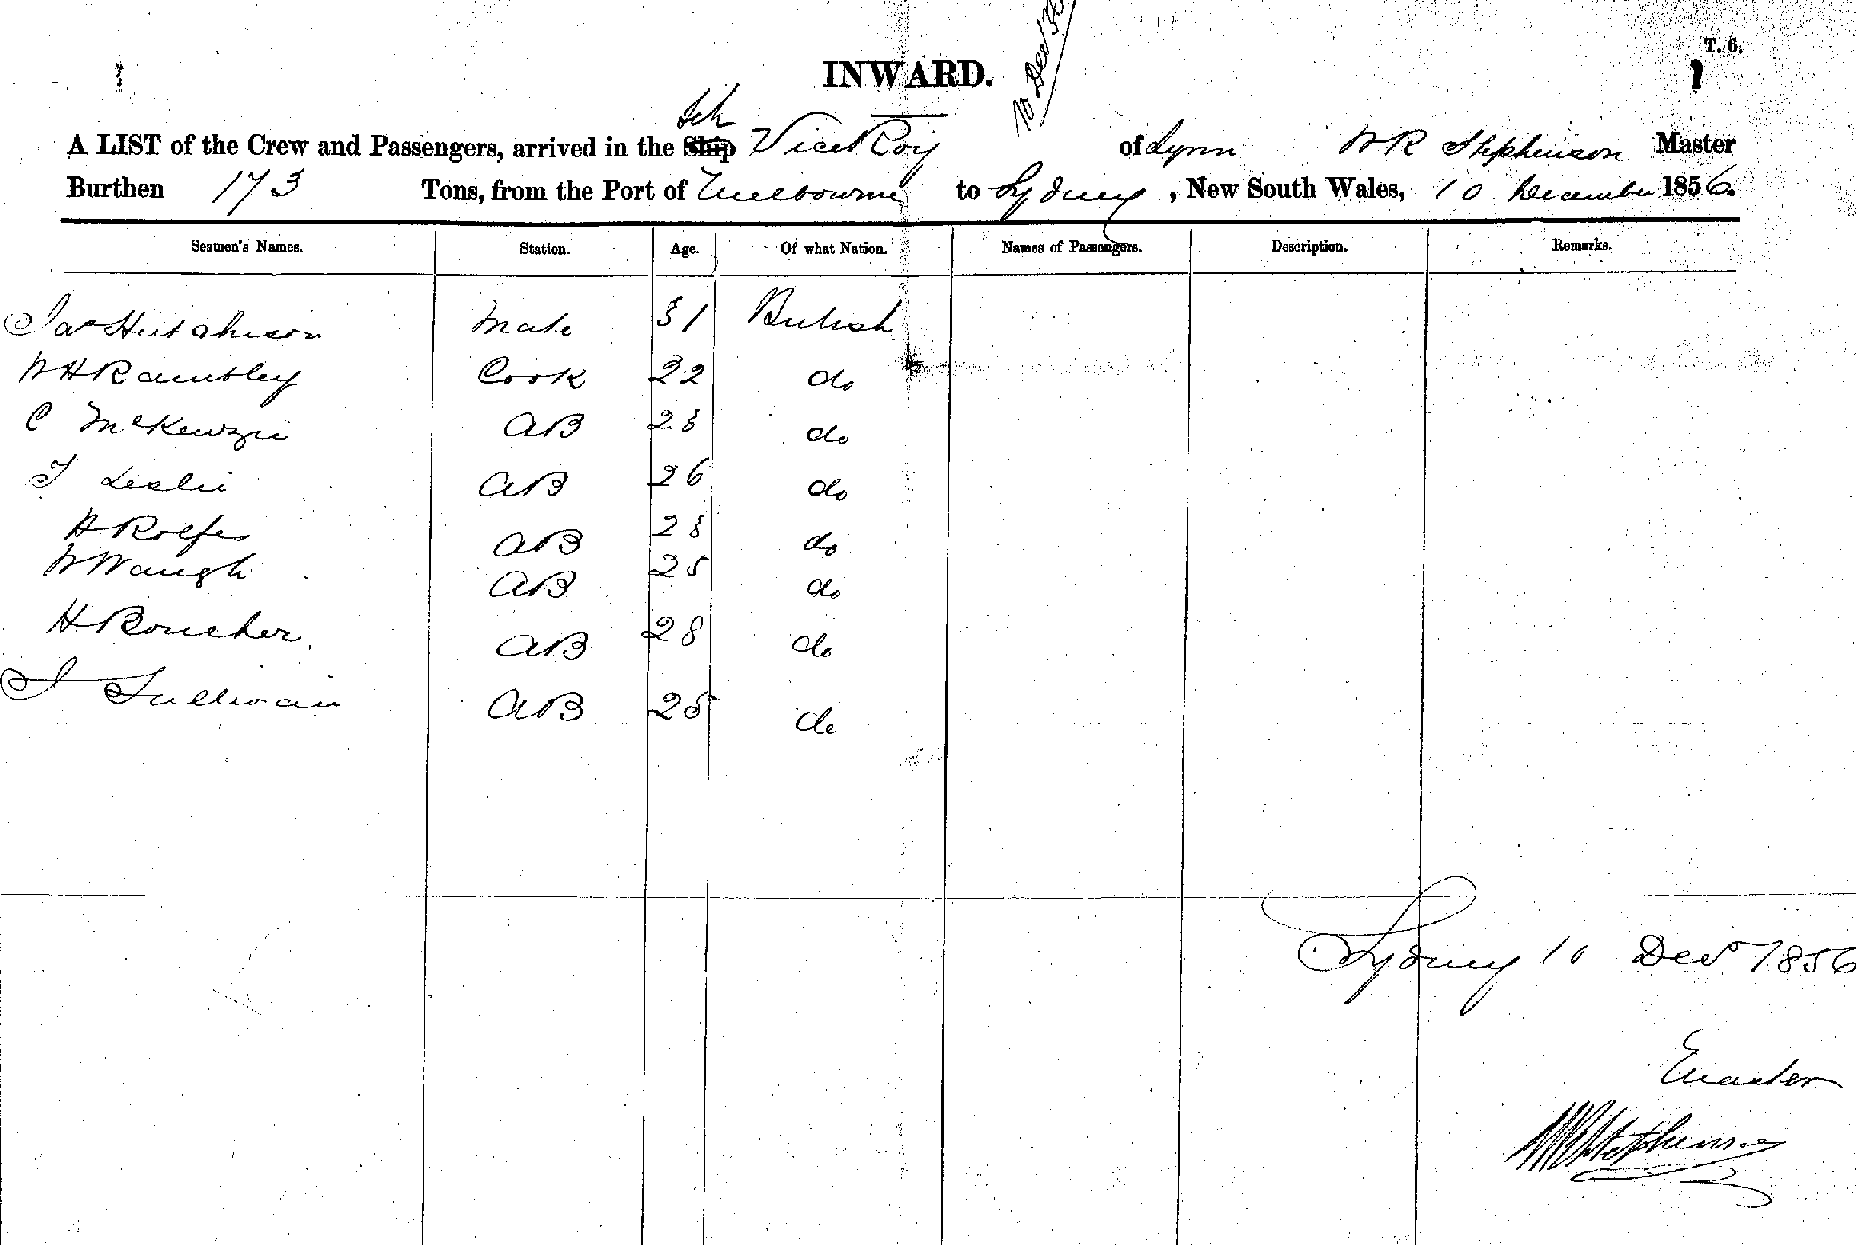 T. 6.
10 Decr 56
INWARD.
Sch
A LIST of the Crew and Passengers, arrived in the Ship Vice Roy of Lynn W R Stephenson Master
Burthen 173 Tons, from the Port of Melbourne to Sydney, New South Wales, 10 December 1856.
Seamen's Names. Station. Age. Of what Nation. Names of Passengers. Description. Remarks.
Jas Hutchison Mate 31 British
W H Rambley Cook 22 do
C McKenzie AB 23 do
T Leslie AB 26 do
H Rolfe AB 23 do
W Waugh AB 25 do
H Boucher. AB 28 do
J Sullivan AB 25 do
Sydney 10 Decr 1856
Master
W R Stephenson